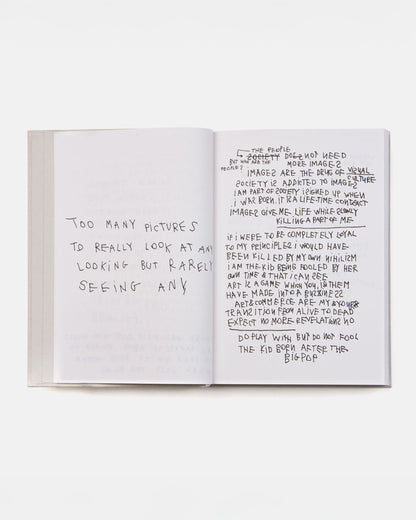 TOO MANY PICTURES
TO REALLY LOOK AT ANY
LOOKING BUT RARELY
SEEING ANY
THE PEOPLE
SOCIETY DOES NOT NEED
BUT WHO ARE THE
PEOPLE?
MORE IMAGES
IMAGES ARE THE DRUG OF VISUAL
CULTURE
SOCIETY IS ADDICTED TO IMAGES
I AM PART OF SOCIETY I SIGNED UP WHEN
I WAS BORN. IT IS A LIFE-TIME CONTRACT
IMAGES GIVE ME LIFE WHILE SLOWLY
KILLING A PART OF ME
IF I WERE TO BE COMPLETELY LOYAL
TO MY PRINCIPLES I WOULD HAVE
BEEN KILLED BY MY OWN NIHILISM
I AM THE KID BEING FOOLED BY HER
OWN TIME & THAT I CAN SEE
ART IS A GAME WHICH YOU, IN THEM
HAVE MADE INTO A BUSINESS
ART & COMMERCE ARE MY
TRANSITION FROM ALIVE TO DEAD
EXPECT NO MORE REVELATIONS NO
DO PLAY WITH BUT DO NOT FOOL
THE KID BORN AFTER THE
BIG POP